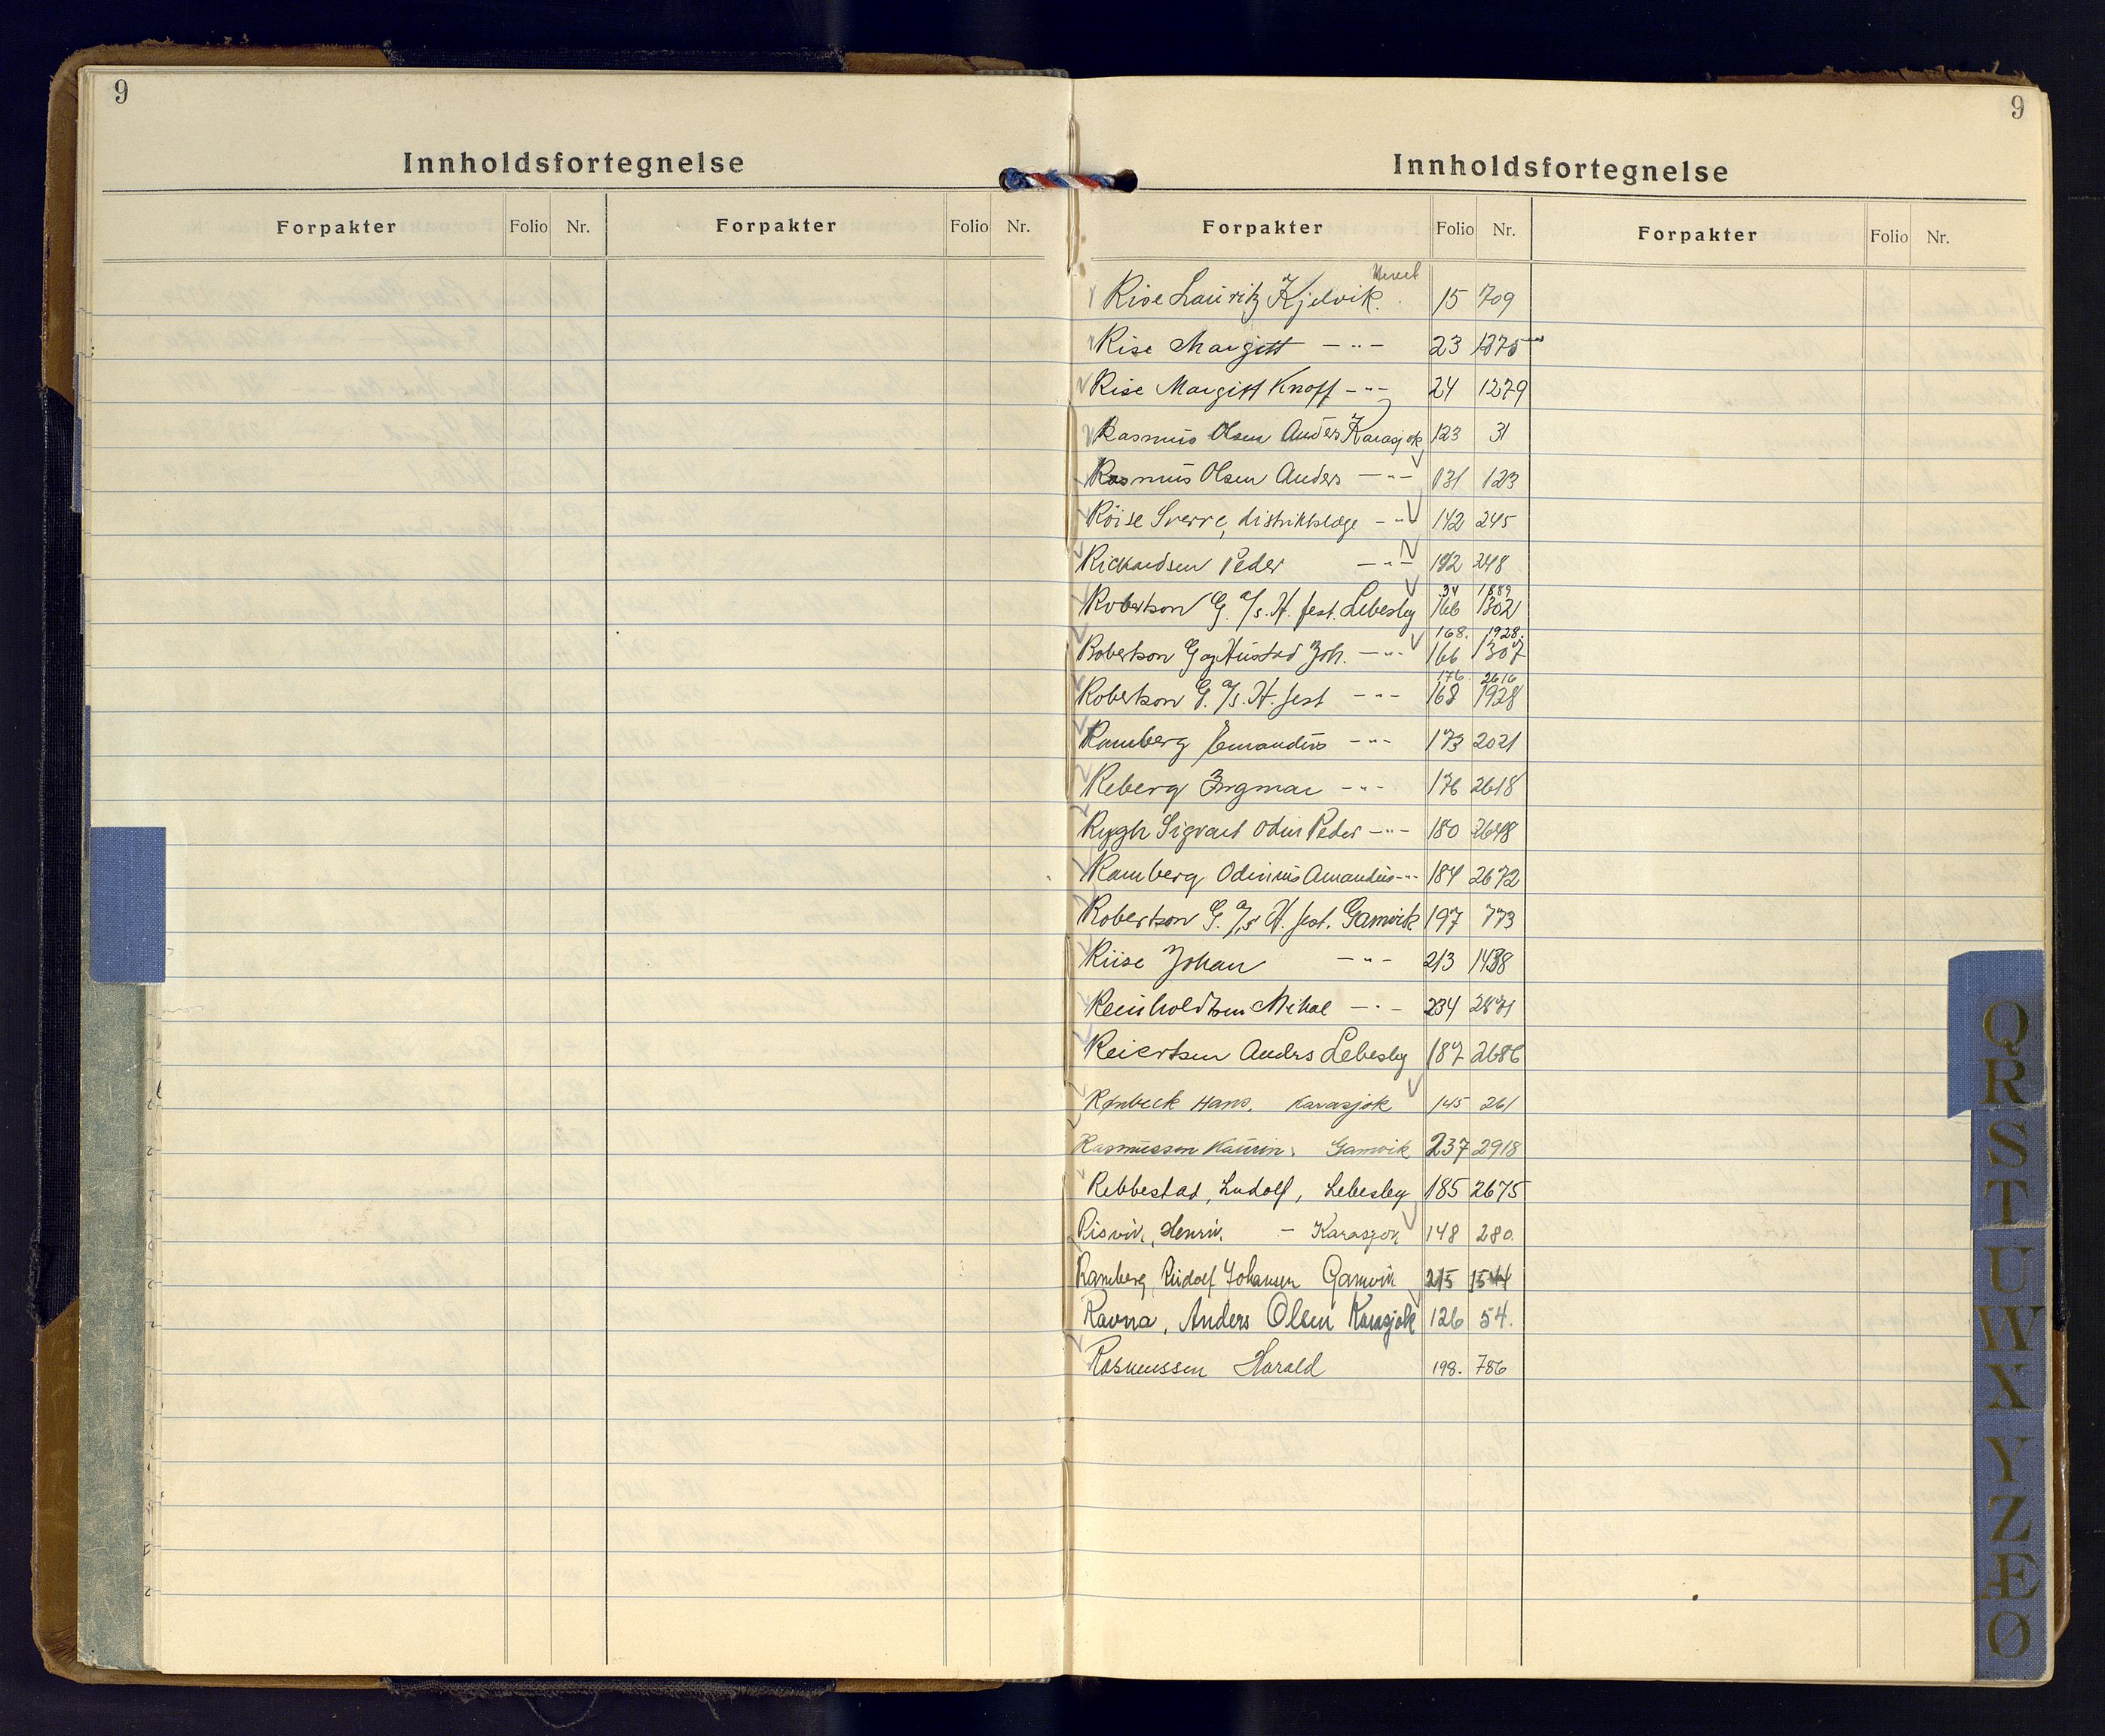 9
Innholdsfortegnelse
Forpakter Folio Nr. Forpakter Folio Nr.
9
Innholdsfortegnelse
Forpakter Folio Nr. Forpakter Folio Nr.
Rise Lauritz Kjelvik. 15 709
Rise Margitt —"— 23 1275
Rise Margitt Knoff —"— 24 1279
Rasmus Olsen Anders Karasjok 123 31
Rasmus Olsen Anders —"— 131 123
Röise Sverre, distriktslæge —"— 142 245
Rickardsen Peder —"— 142 248
34 1889
Robertson G. A/s. H.fest. Lebesby 166 1302
168. 1928.
Robertson G og Hustad Joh. —"— 166 1307
176 2616
Robertson G. A/s. H.fest —"— 168 1928
Ramberg Emandus —"— 173 2021
Reberg Ingmar —"— 176 2618
Rygh Sigvart Odin Peder —"— 180 2648
Ramberg Odinius Amandus —"— 184 2672
Robertson G. A/s H.fest. Gamvik 197 773
Riise Johan —"— 213 1438
Reinholdtsen Mikal —"— 234 2871
Reiertsen Anders Lebesby 187 2686
Rønbeck Hans. Karasjok 145 261
Rasmussen Kaurin, Gamvik 237 2918
Rebbestad, Ludolf, Lebesby 185 2675
Risvik, Henrik. — Karasjok 148 280.
Ramberg, Rudolf Johansen Gamvik 215 1544
Ravna, Anders Olsen Karasjok 126 54.
Rasmussen Harald 198. 786
Q
R
S
T
U
W
X
Y
Z
Æ
Ø